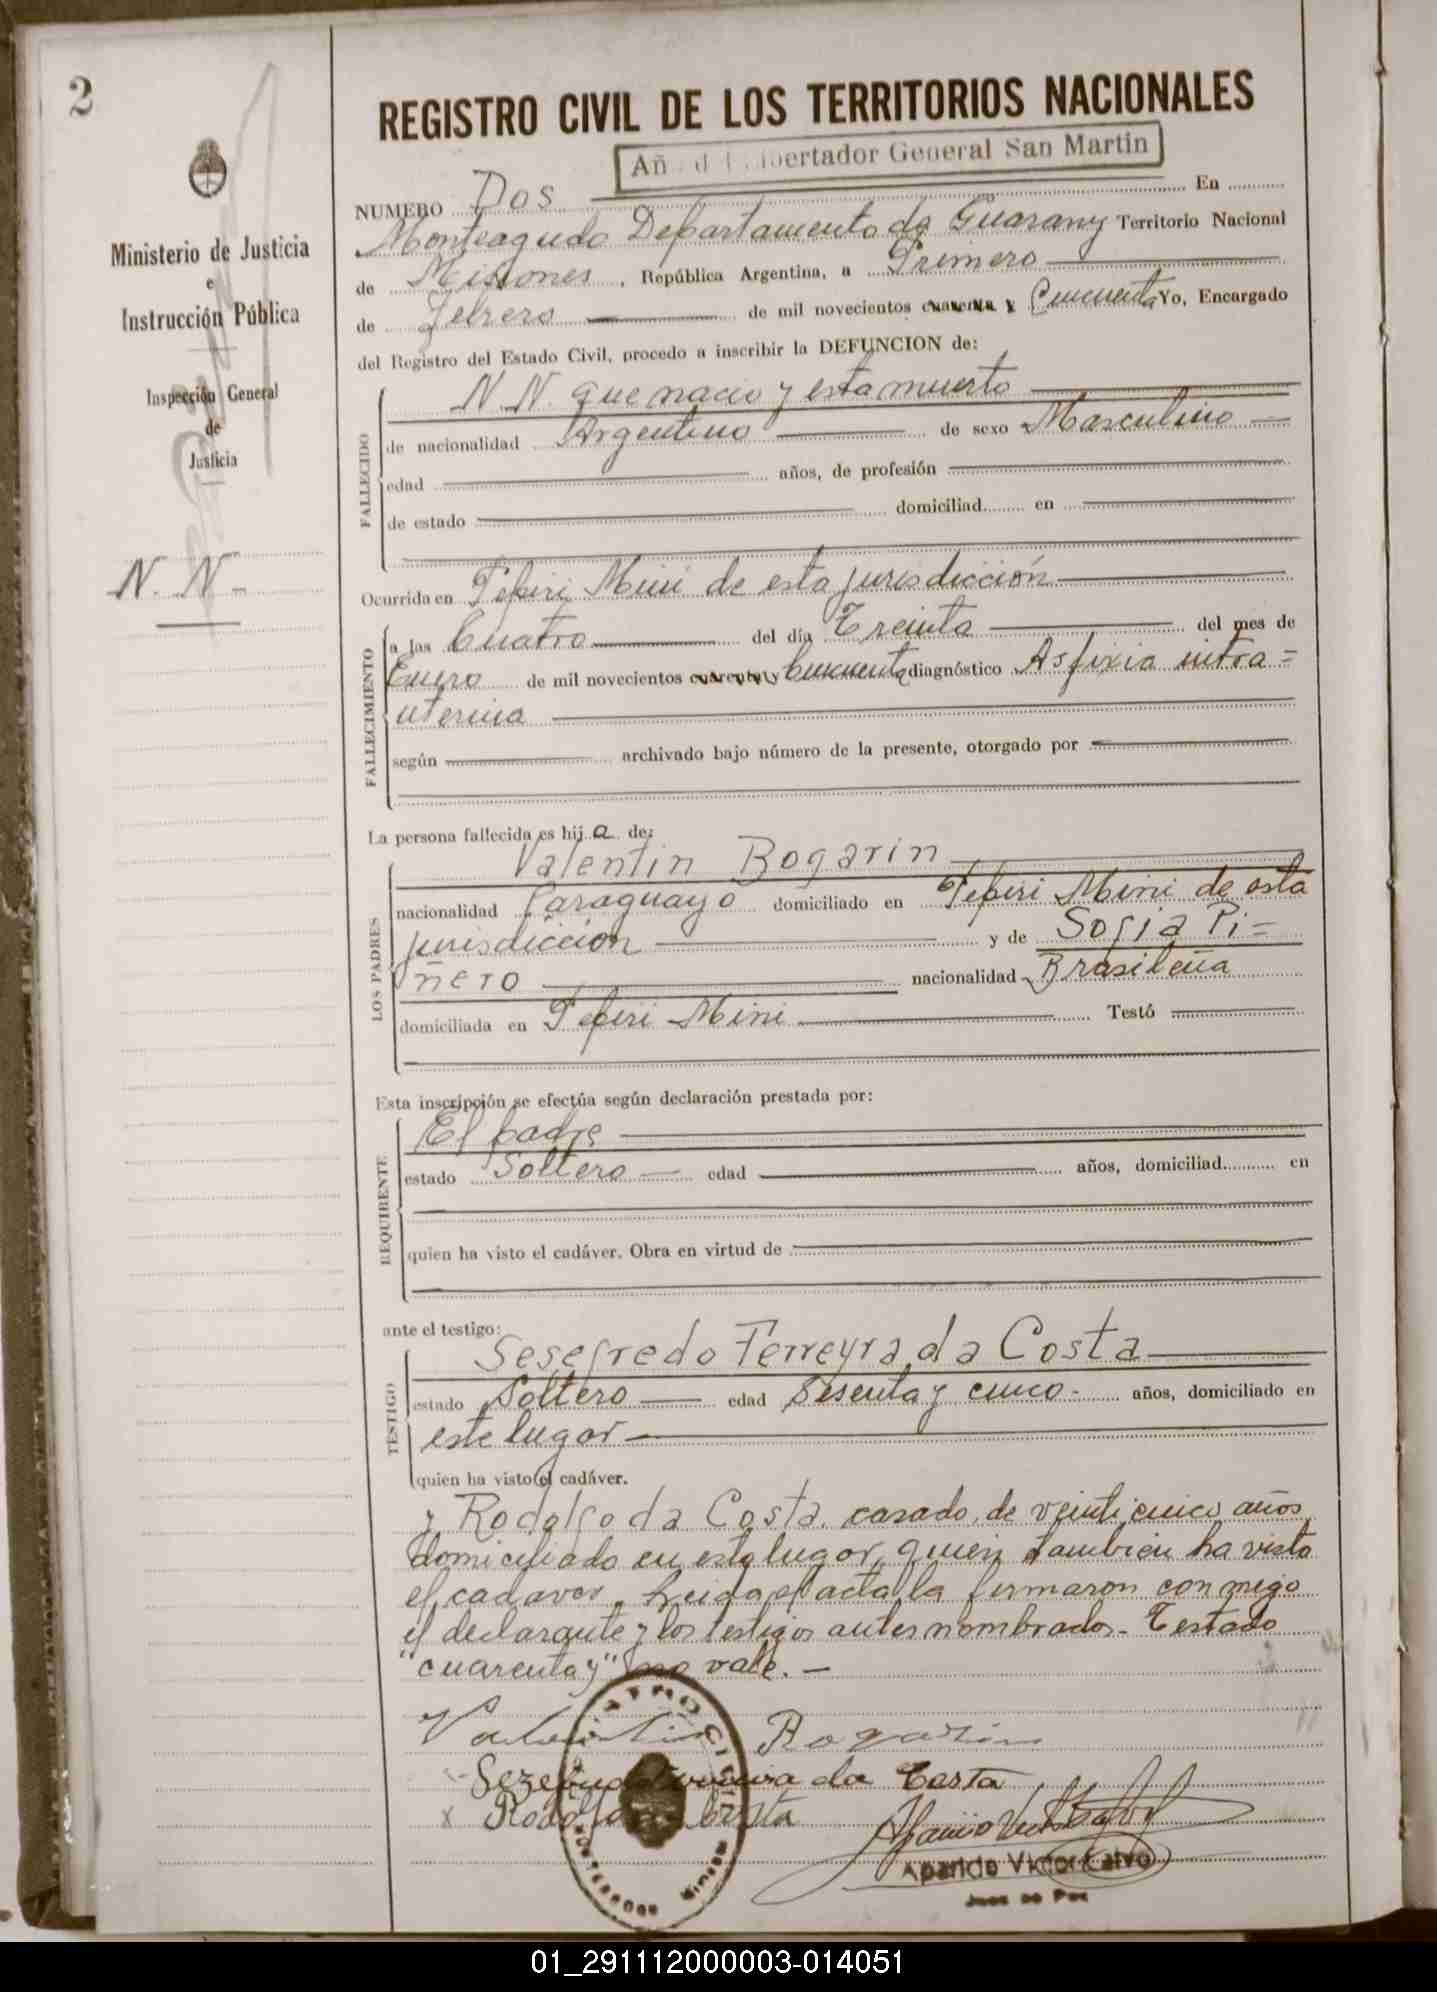 2
REGISTRO CIVIL DE LOS TERRITORIOS NACIONALES
Añ d l bertador General San Martin
NUMERO Dos En
Monteagudo Departamento de Guarany Territorio Nacional
de Misiones, República Argentina, a Primero
de Febrero de mil novecientos cuarenta y Cincuenta Yo, Encargado
del Registro del Estado Civil, procedo a inscribir la DEFUNCION de:
Ministerio de Justicia
e
Instrucción Pública
Inspección General
de
Justicia
N. N-
FALLECIDO
N.N. que nacio y esta muerto
de nacionalidad Argentino de sexo Masculino
edad años, de profesión
de estado domiciliad en
Ocurrida en Pepiri Mini de esta jurisdicción
FALLECIMIENTO
a las Cuatro del día Treinta del mes de
Enero de mil novecientos cuarenta y Cincuenta diagnóstico Asfixia intra=
uterina
según archivado bajo número de la presente, otorgado por
La persona fallecida es hij a de:
LOS PADRES
Valentin Bogarin
nacionalidad Paraguayo domiciliado en Pepiri Mini de esta
jurisdiccion y de Sofia Pi=
ñero nacionalidad Brasileña
domiciliada en Pepiri Mini Testó
Esta inscripción se efectúa según declaración prestada por:
REQUIRENTE
El padre
estado Soltero edad años, domiciliad en
quien ha visto el cadáver. Obra en virtud de
ante el testigo:
TESTIGO
Sesefredo Ferreyra da Costa
estado Soltero edad Sesenta y cinco- años, domiciliado en
este lugar
quien ha visto el cadáver.
y Rodolfo da Costa, casado, de veinticinco años,
domiciliado en este lugar, quien tambien ha visto
el cadaver. Leida el acta la firmaron conmigo
el declarante y los testigos antes nombrados- Testado
"cuarenta y" no vale.-
Valentin Bogarin
da Costa
x Rodolfo Costa
Aparicio Victor Calvo
Juez de Paz
01_291112000003-014051